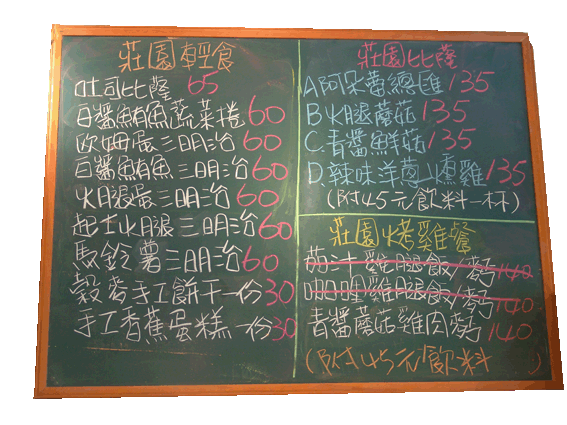 莊園輕食
吐司比薩 65
白醬鮪魚蔬菜捲 60
歐姆蛋三明治 60
白醬鮪魚三明治 60
火腿蛋三明治 60
起士火腿三明治 60
馬鈴薯三明治 60
穀麥手工餅干一份 30
手工香蕉蛋糕一份 30
莊園比薩
A.阿朵蕾總匯 135
B.火腿蘑菇 135
C.青醬鮮菇 135
D.辣味洋蔥燻雞 135
(附45元飲料一杯)
莊園烤雞餐
茄汁雞腿飯/麵 140
咖哩雞腿飯/麵 140
青醬蘑菇雞肉麵 140
(附45元飲料)